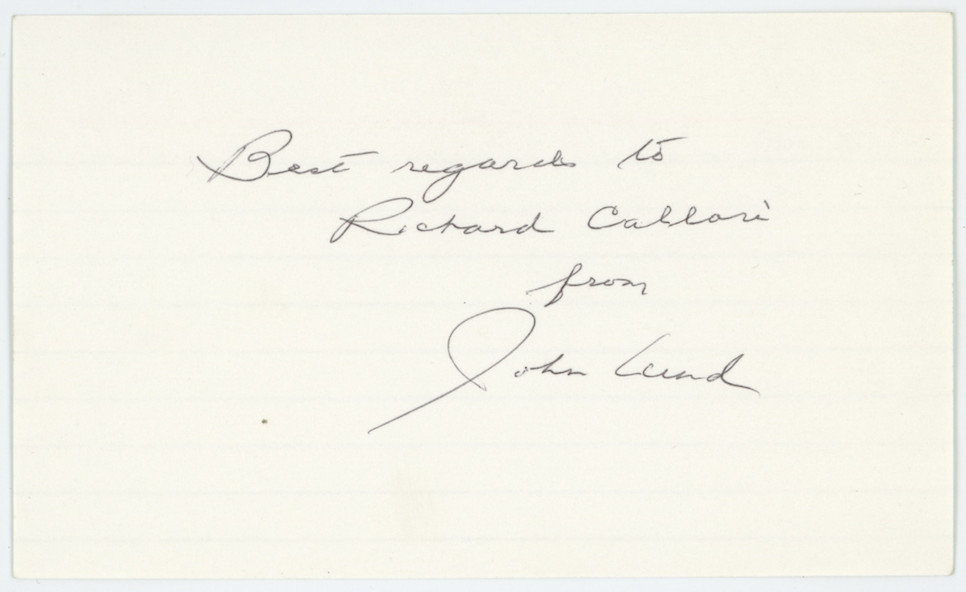 Best regards to
Richard Callari
from
John Lund